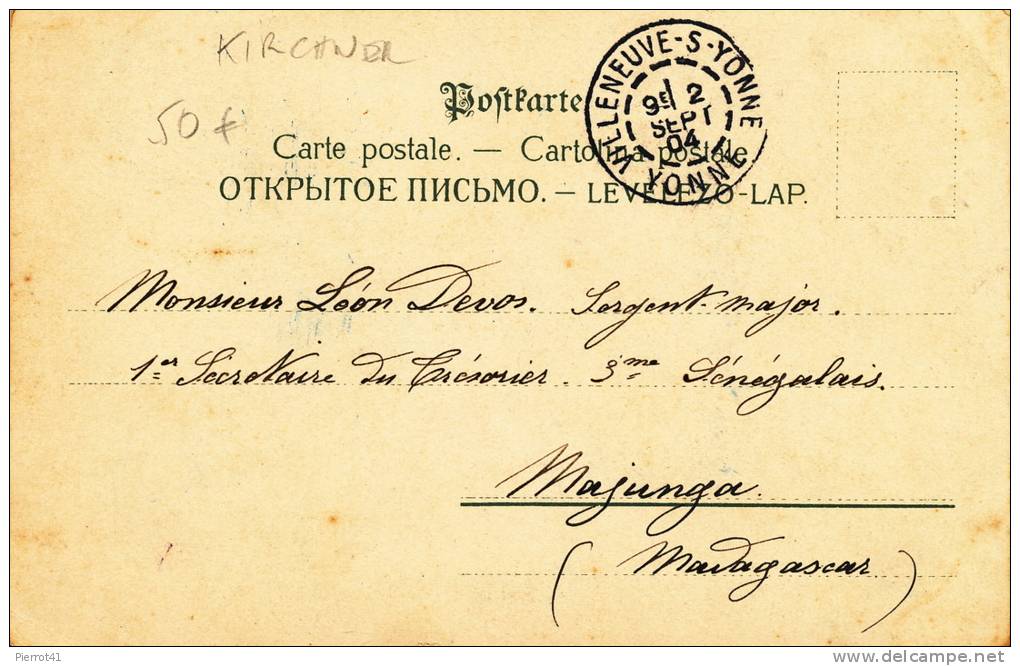 KIRCHNER
50 €
Postkarte
VILLENEUVE-S-YONNE
9E 2
SEPT
04
YONNE
Carte postale. — Cartolina postale.
ОТКРЫТОЕ ПИСЬМО. — LEVELEZŐ-LAP.
Monsieur Léon Devos. Sergent-major.
1er Secrétaire du Trésorier. 3ème Sénégalais.
Majunga.
(Madagascar)
Pierrot41
www.delcampe.net